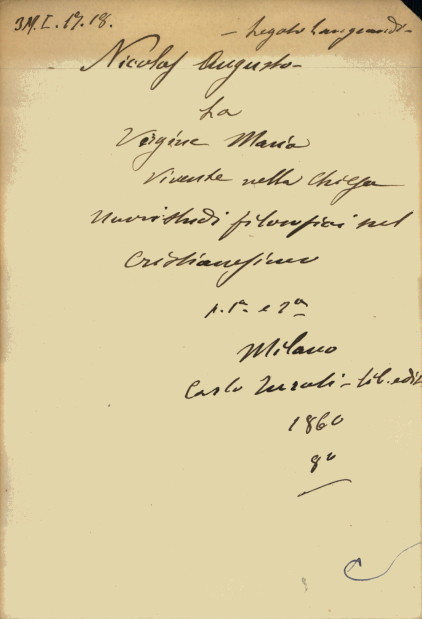 3M.I.17.18.
- Legato Sanguardi -
Nicolas Augusto -
La
Vergine Maria
vivente nella Chiesa
Nuovi studi filosofici sul
Cristianesimo
p. 1ª e 2ª
Milano
Carlo Turati - lib. edit.
1860
8º